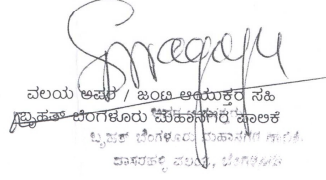 ವಲಯ ಅಪರ / ಜಂಟಿ ಆಯುಕ್ತರ ಸಹಿ
ಬೃಹತ್ ಬೆಂಗಳೂರು ಮಹಾನಗರ ಪಾಲಿಕೆ
ಬೃಹತ್ ಬೆಂಗಳೂರು ಮಹಾನಗರ ಪಾಲಿಕೆ
ದಾಸರಹಳ್ಳಿ ವಲಯ, ಬೆಂಗಳೂರು